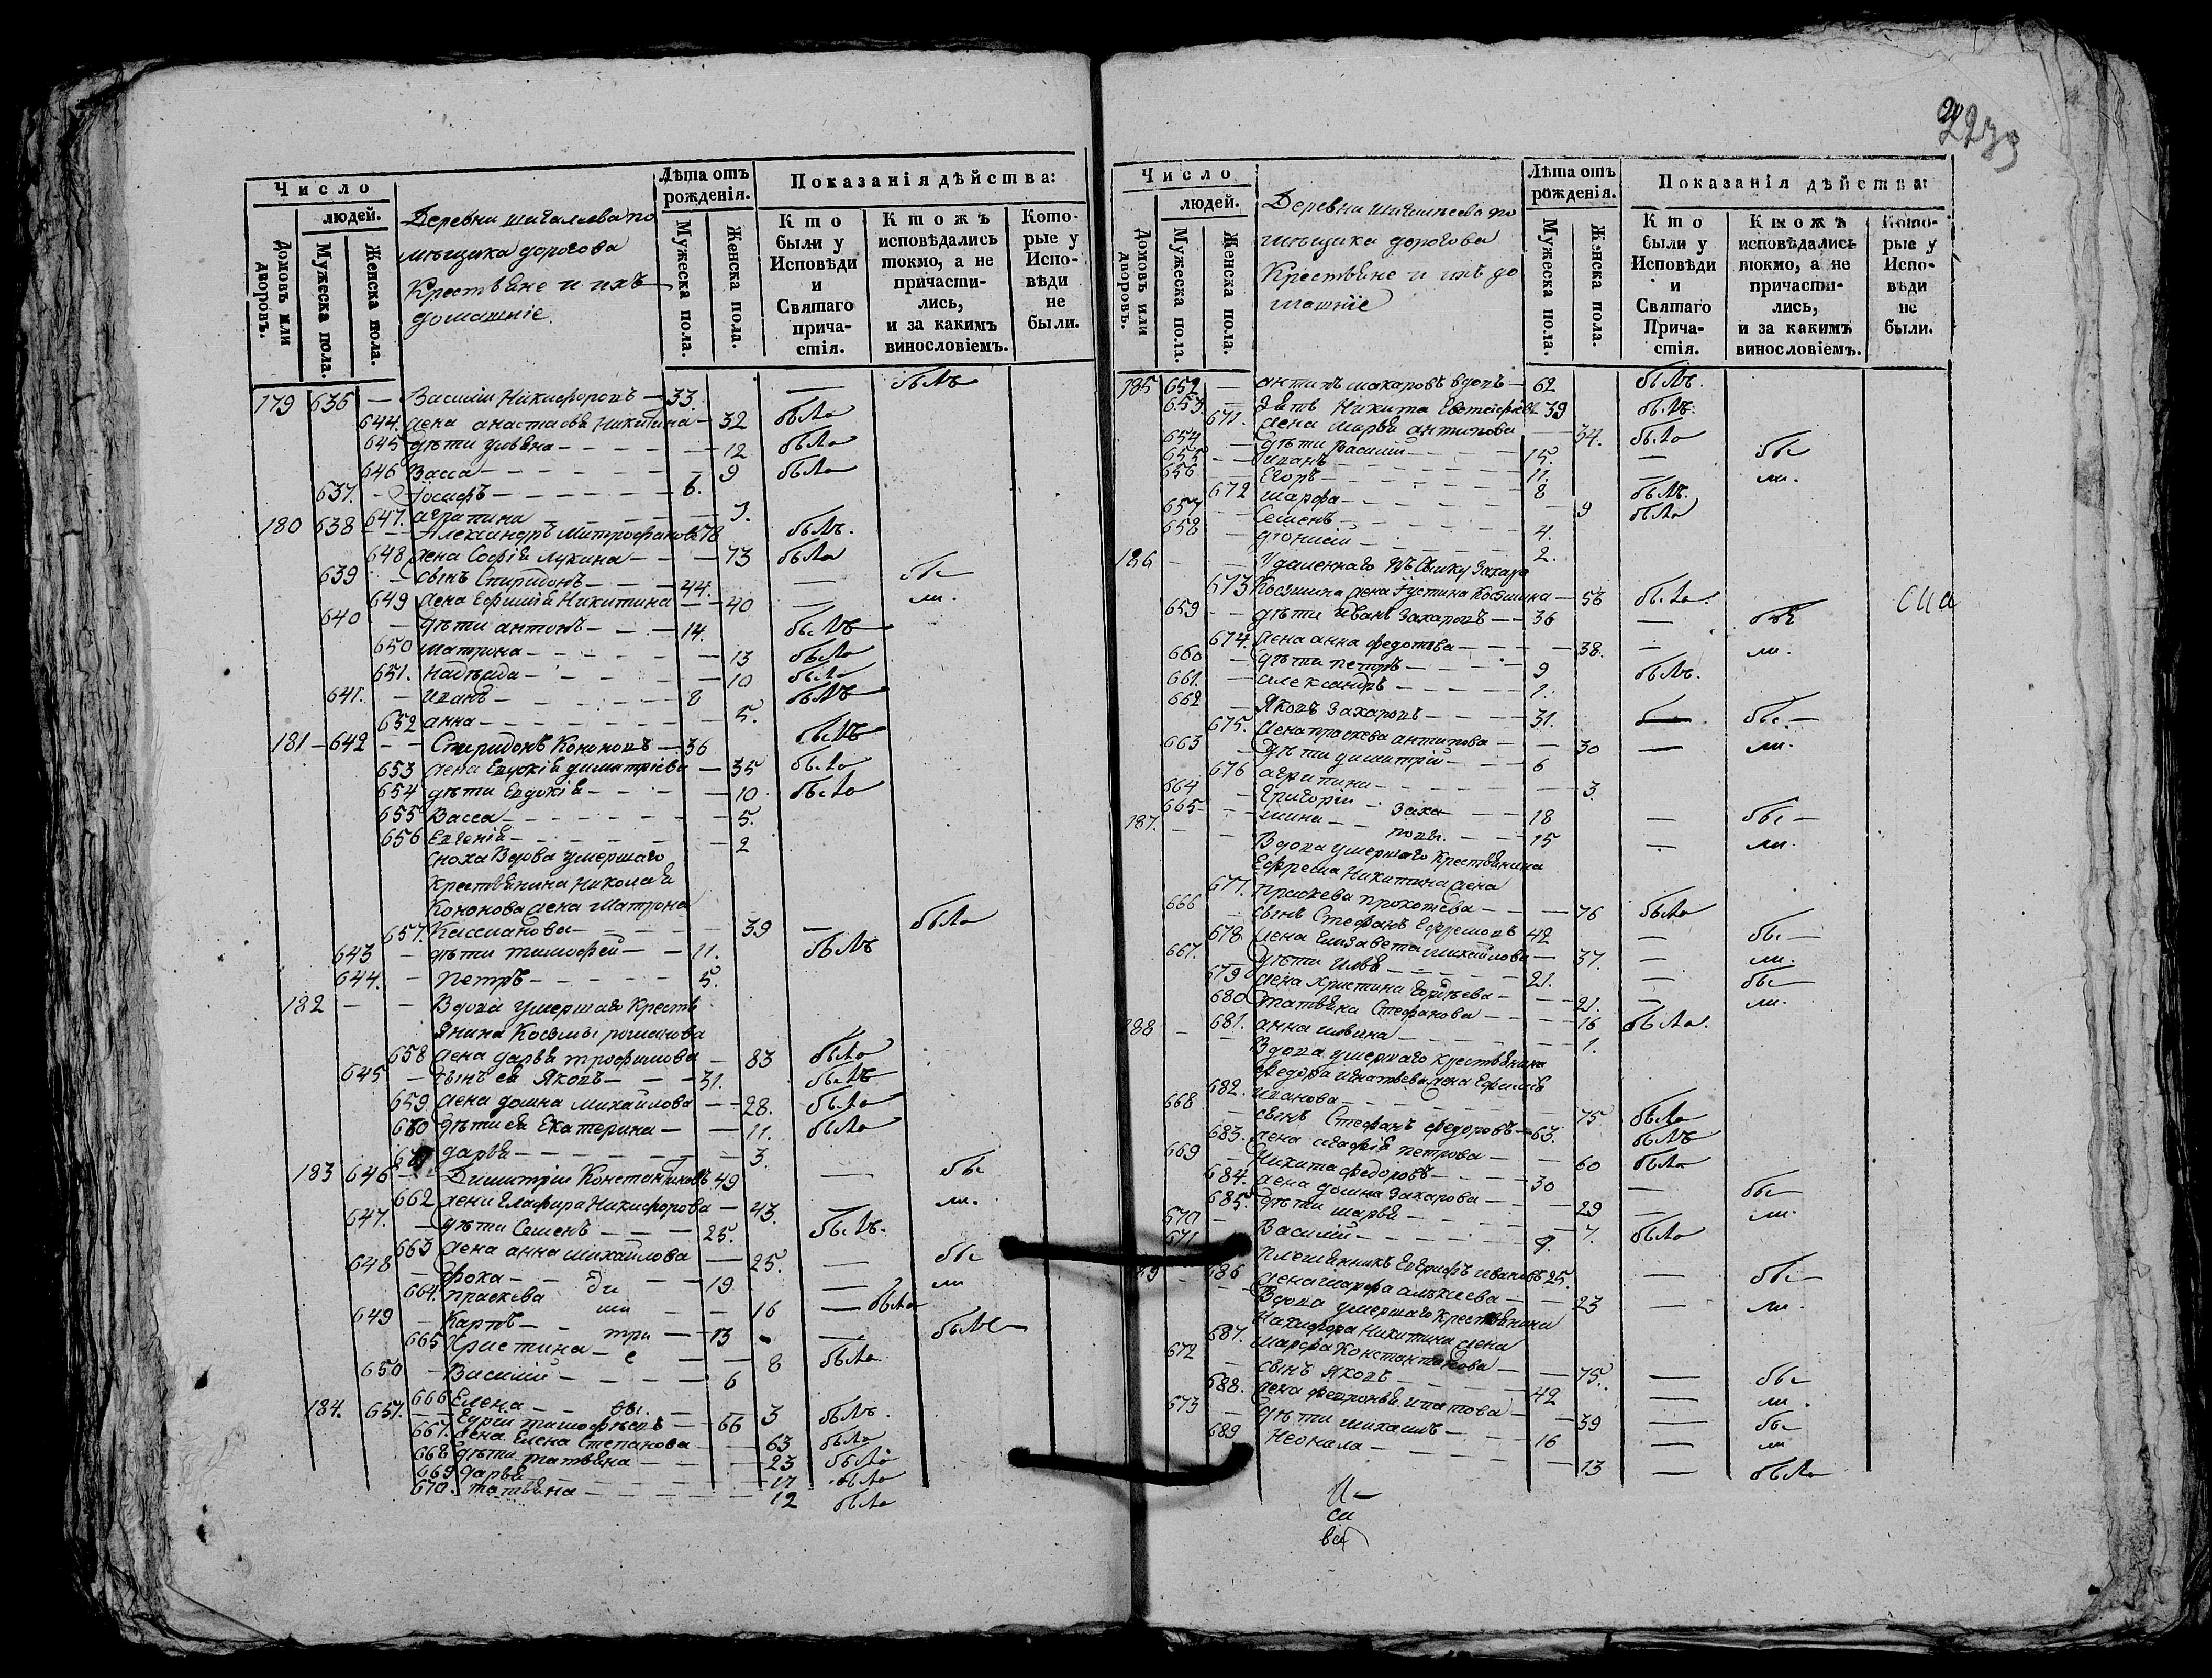 Число
людей.
Домовъ или дворовъ.
Мужеска пола.
Женска пола.
Деревни шигалиева по
мѣщика дорогова
Крестьяне и ихъ
домашніе
Лѣта отъ рожденія.
Мужеска пола.
Женска пола.
Показанія дѣйства:
Кто были у Исповѣди и Святаго причастія.
Ктожъ исповѣдались токмо, а не причастились, и за какимъ винословіемъ.
Которые у Исповѣди не были.
179 636 — Василій Никифоровъ — 33. — былъ
644. жена анастасія Никитина — 32 была
645 дѣти улияна — 12 была
646 Васса — 9 была
637. — Іосифъ — 6.
647. агрипина — 3.
180 638 — Александръ Митрофановъ 78 былъ.
648 жена Софія Лукина — 73 была
639 — сынъ Спиридонъ — 44. — бы
649 жена Ефимія Никитина — 40 — ли.
640 — дѣти антонъ — 14. былъ
650 матрона — 13 была
651. Надежда — 10 была
641. — иванъ — 8 былъ
652 анна — 5.
181 — 642 — Спиридонъ Кононовъ — 36 былъ
653 жена Евдокія димитріева — 35 была
654 дѣти Евдокія — 10 была
655 Васса — 5.
656 Евгенія — 2
сноха Вдова умершаго
Крестьянина Николая
Кононова жена Матрона
657. Кассианова — 39 — была
643 — дѣти тимофей — 11. былъ
644. — Петръ — 5.
182 — — Вдова умершаго Кресть
янина Космы романова
658 жена дарья трофимова — 83 была
645 — сынъ ея Яковъ — 31. былъ
659 жена домна михайлова — 28. была
660 дѣти ея Екатерина — 11. была
661 дарья — 3.
183 646 — Димитрій Константиновъ 49 — бы
662 жена Глафира Никифорова — 43. — ли.
647. — дѣти Семенъ — 25. былъ.
663 жена анна михайлова — 25. — бы
648 — фока — ди — 19 — ли
664. праскева ми — 16 — была
649 — Карпъ — три — 13 — былъ
665 Христина — е — 8 была
650 — Василій — 6
666 Елена — вы. — 3
184. 651. — Гурій тимофѣевъ — 66 былъ.
667. жена Елена Степанова — 63 была
668 дѣти татьяна — 23 была
669 дарья — 17 была
670. татьяна — 12 была
Число
людей.
Домовъ или дворовъ.
Мужеска пола.
Женска пола.
Деревни шигалѣева по
мѣщика дорогова
Крестьяне и ихъ до
машніе
Лѣта отъ рожденія.
Мужеска пола.
Женска пола.
Показанія дѣйства:
Кто были у Исповѣди и Святаго Причастія.
Ктожъ исповѣдались токмо, а не причастились, и за какимъ винословіемъ.
Которые у Исповѣди не были.
185 652 — антипъ макаровъ вдовъ — 62 былъ.
653 — Зять Никита Евстафіевъ 39 былъ.
671. жена марья антипова — 34. была
654 — дѣти Василій — 15. — бы
655 — иванъ — 11. — ли.
656 — Егоръ — 8 былъ.
672 марфа — 9 была
657 — Семенъ — 4.
658 — діонисій — 2.
186 — — Захара
673 Космина жена Іустина Космина — 58 была.
659 — дѣти иванъ Захаровъ — 36 — бы
674. жена анна федотова — 38. — ли.
660 — дѣти петръ — 9 былъ.
661. — александръ — 1.
662 — Яковъ Захаровъ — 31. — бы —
675. жена праскева антипова — 30 — ли.
663 — дѣти димитрій — 6
676 агрипина — 3.
664 — Григорій — Заха — 18 — бы —
665 — мина — ровы. — 15 — ли.
187. — — Вдова умершаго Крестьянина
Ефрема Никитина жена
677. праскева прокопьева — 76 была
666 — сынъ Стефанъ Ефремовъ 42 — бы —
678 жена Елизавета михайлова — 37. — ли.
667. — дѣти илья — 21. — бы
679 жена христина — 21. — ли.
680 татьяна Стефанова — 16 была.
681. анна ильина — 1.
188 — — Вдова умершаго крестьянина
федора игнатьева жена Ефимія
682. иванова — 75 была
668 — сынъ Стефанъ федоровъ — 63. былъ
683. жена агафія петрова — 60 была
669 — Никита федоровъ — 30 — бы
684. жена домна Захарова — 29 — ли.
685. дѣти марья — 7. была
670 — Василій — 9.
671 — племянникъ Евграфъ ивановъ 25. — бы
686 жена марфа алексеева — 23 — ли.
189 — — Вдова умершаго крестьянина
Никифора Никитина жена
687. марфа Константинова — 75. — бы
672 — сынъ Яковъ — 42 — ли.
688. жена февронья ипатова — 39 — бы
673 — дѣти михаилъ — 16 — ли
689 Неонила — 13 — была